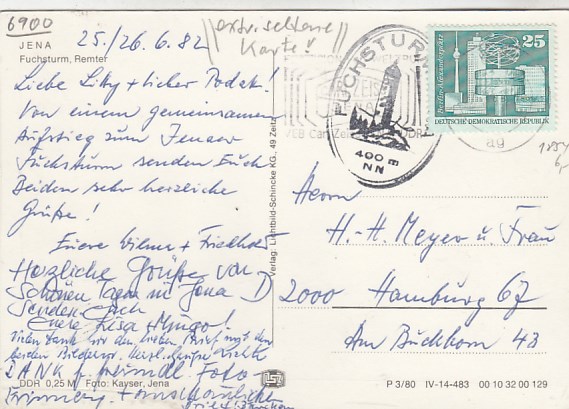 6900
25./26.6.82
//extra seltene
Karte!//
JENA
Fuchsturm, Remter
Liebe Lilly + lieber
Von einem gemeinsamen
Aufstieg zum Jenaer
Fuchsturm senden Euch
Beiden sehr herzliche
Grüße!
Euere Wilma + Friedhold
Herzliche Grüße von
schönen Tagen in Jena
senden Euch
Euere Lisa
Vielen Dank für den lieben Brief mit den
beiden
DANK f. Foto
Erinnerung +
DDR 0,25 M Foto: Kayser, Jena
Verlag: Lichtbild-Schincke KG., 49 Zeitz
FUCHSTURM
400 m
NN
ZEISS
JENA
VEB Carl Zeiss DDR
25
Berlin, Alexanderplatz
DEUTSCHE DEMOKRATISCHE REPUBLIK
ag
Herrn
H.-H. Meyer u. Frau
2000 Hamburg 67
Am Buchhorn 43
P 3/80 IV-14-483 00 10 32 00 129